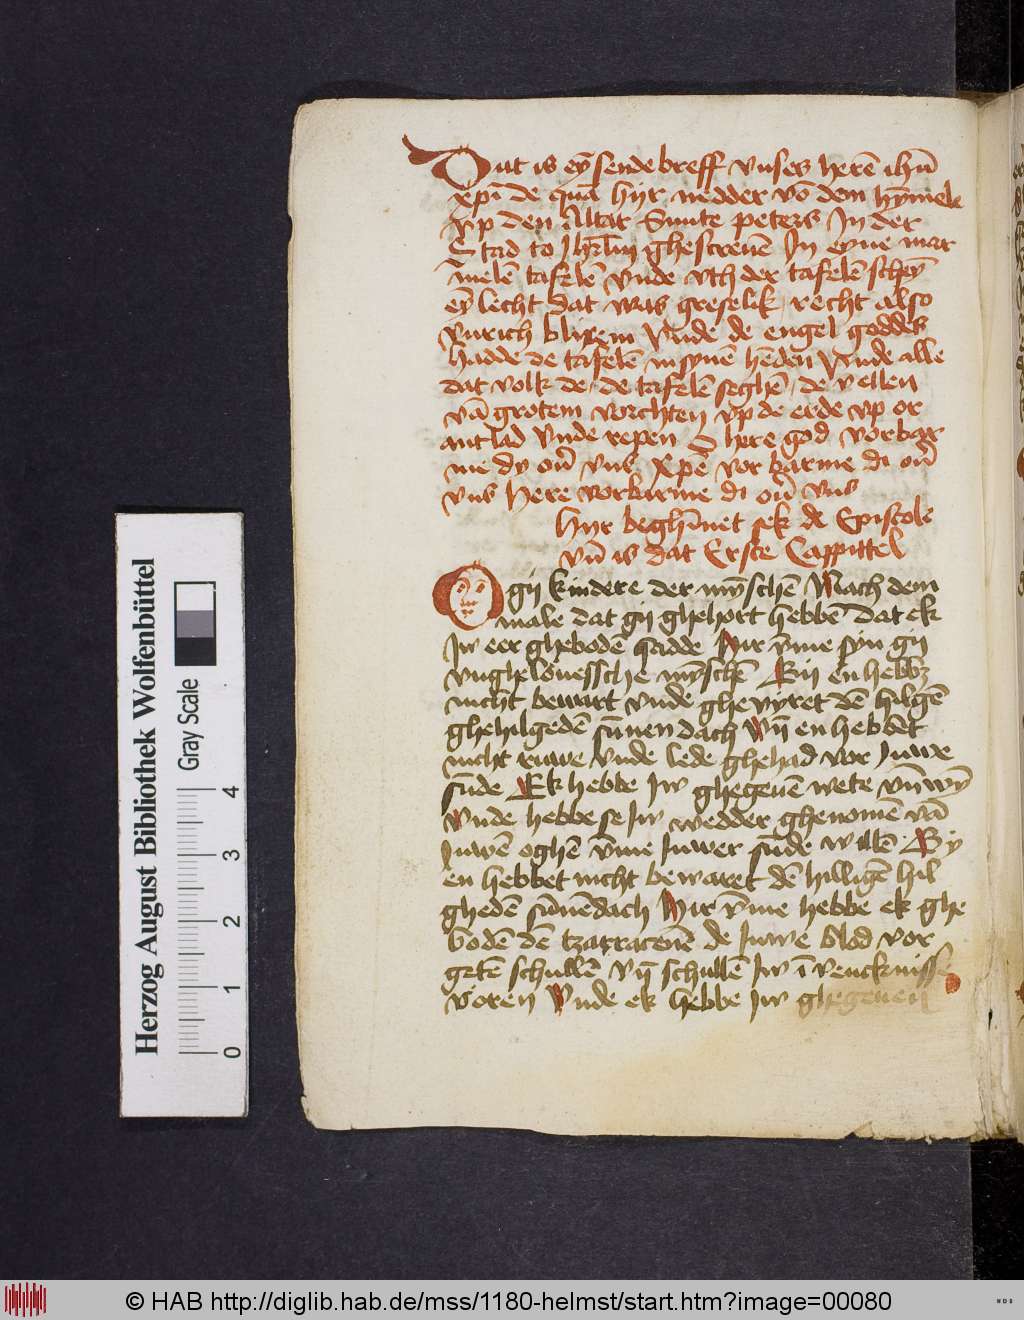 Dut is eȳ sendebreff vnses herē ihū
xpi de quā hijr nedder vō dem hȳmele
vp den Altar Sunte peters In der
Stad to Jhrlm̄ ghescreuē In eyne mar
melē tafelē vnde vth der tafelē scheȳ
eȳ lecht dat was greselik recht also
vurich blixem vnde de engel goddes
hadde de tafelē in synē hēden vnde alle
dat volk de de tafelē seghē de vellen
vā grotem vorchten vp de erde vp or
antlad vnde repen O here god vorbar
me dy ouͤ vns xp̄e vor barme di ouͤ
vns here vorbarme di ouͤ vns
Hijr beghīnet sek de Epistole
vn̄ is dat Erste Cappittel
O gij kindere der mȳschē Nach dem
male dat gij ghehort hebbē dat ek
Jw eer ghebodē hadde Hir v̄me syn gij
vnghelouessche mȳschē Gij en hebbē
nicht bewart vnde ghevyret dē hilgē
ghehilgedē sūnen dach vn̄ en hebbet
nicht ruwe vnde lede ghehad vor Juwe
sūde Ek hebbe Jw ghegeuē wete vn̄ wȳ
vnde hebbe se Jw wedder ghenomē vā
Juwē oghē v̄me Juwer sūde willē Gy
en hebbet nicht bewaret dē hilligē hil
ghedē sūnēdach Hir v̄me hebbe ek ghe
bodē dē tzarracenē de Juwe blod vor
getē schullē vn̄ schullē Jw ī vencknisse
voren Vnde ek hebbe Jw ghegeuen
Herzog August Bibliothek Wolfenbüttel
Gray Scale
0 1 2 3 4
© HAB http://diglib.hab.de/mss/1180-helmst/start.htm?image=00080